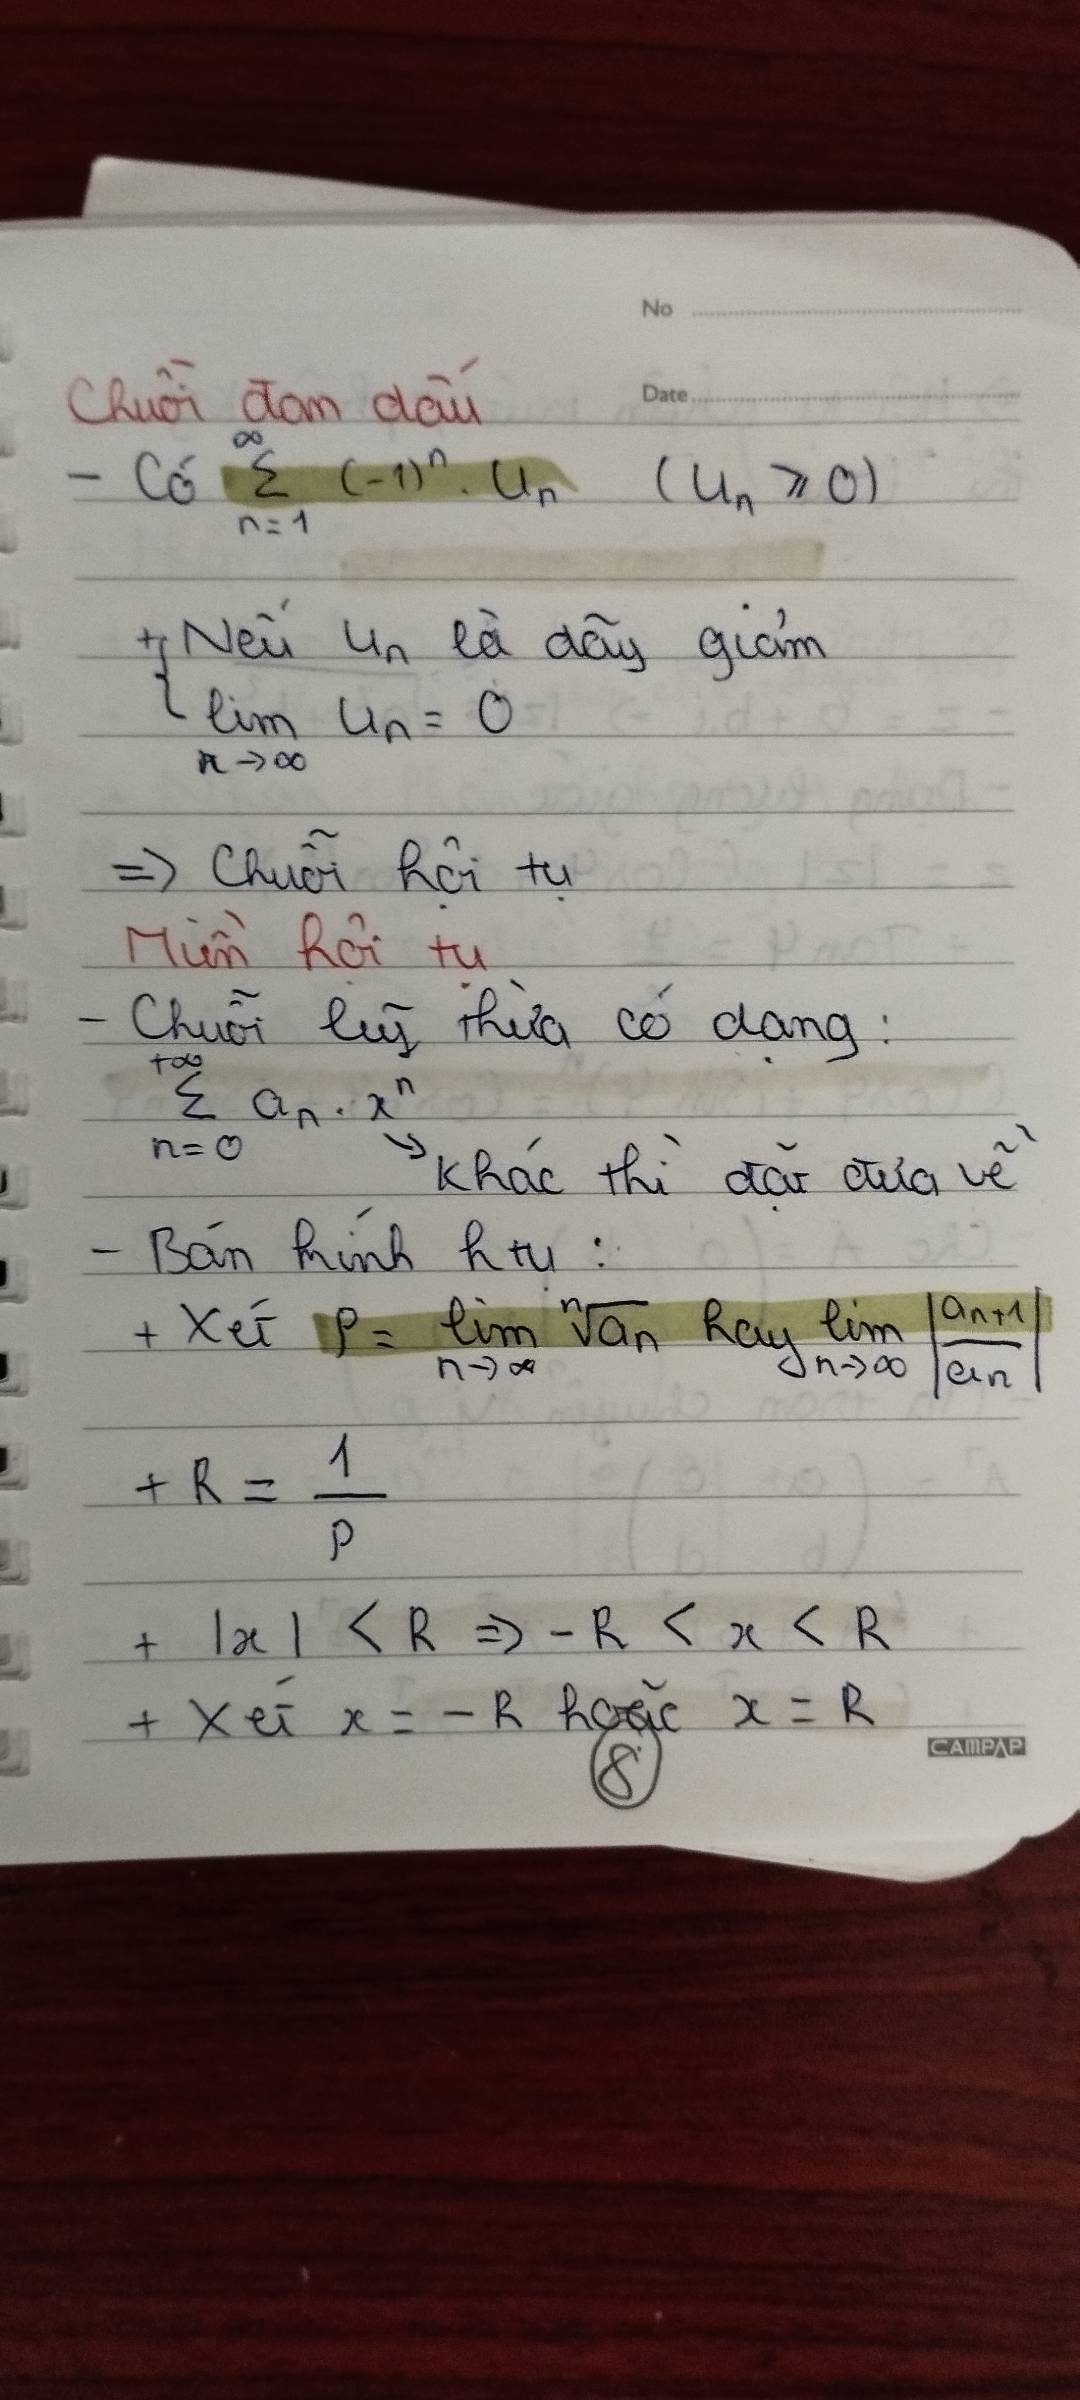 No
Date
Chuỗi đan dấu
- Có ∞∑n=1 (-1)ⁿ . Uₙ (Uₙ ≥ 0)
+ { Nếu Uₙ là dãy giảm
lim n→∞ Uₙ = 0
=> Chuỗi hội tụ
Miền hội tụ
- Chuỗi luỹ thừa có dạng:
+∞∑n=0 aₙ . xⁿ
↘ Khác thì đặt đưa về
- Bán kính htụ :
+ Xét ρ = lim n→∞ ⁿ√aₙ hay lim n→∞ |aₙ₊₁/aₙ|
+ R = 1/ρ
+ |x| < R => -R < x < R
+ Xét x = -R hoặc x = R
8
CAMPAP